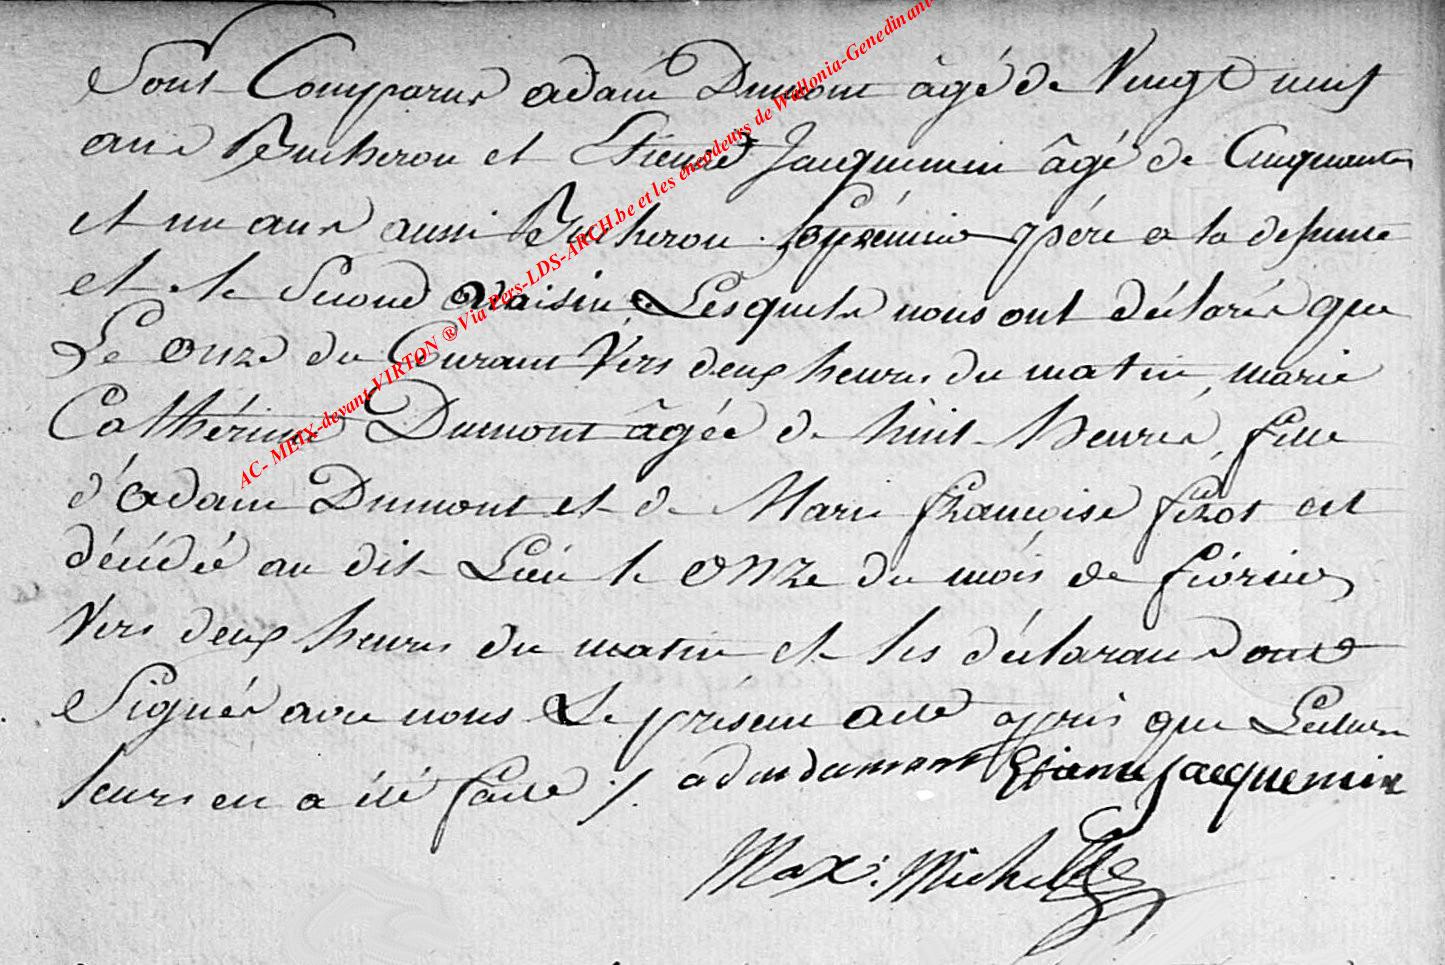 Sont Comparus adam Dumont âgé de Vingt neuf
ans Bucheron et Etienne Jacquemin âgé de Cinquante
et un ans aussi Bucheron. le premier père a la defunte
et le Second Voisin. Lesquels nous ont déclarés que
Le Onze du Courant Vers deux heures du matin, marie
Cathérine Dumont âgée de huit heures, fille
d'adam Dumont et de Marie françoise fizot est
décédé au dit Lieu le Onze du mois de févriers
Vers deux heures du matin et les déclarans ont
Signés avec nous Le présent acte après que Lecture
leurs en a été faite ./. adam dumont Etienne Jacquemin
Max: Michel
AC- MEIX-devant-VIRTON ® Via Pers-LDS-ARCH.be et les encodeurs de Wallonia-Genedinant